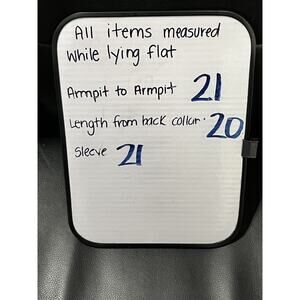 All items measured
while lying flat
Armpit to Armpit 21
Length from back collar. 20
Sleeve 21